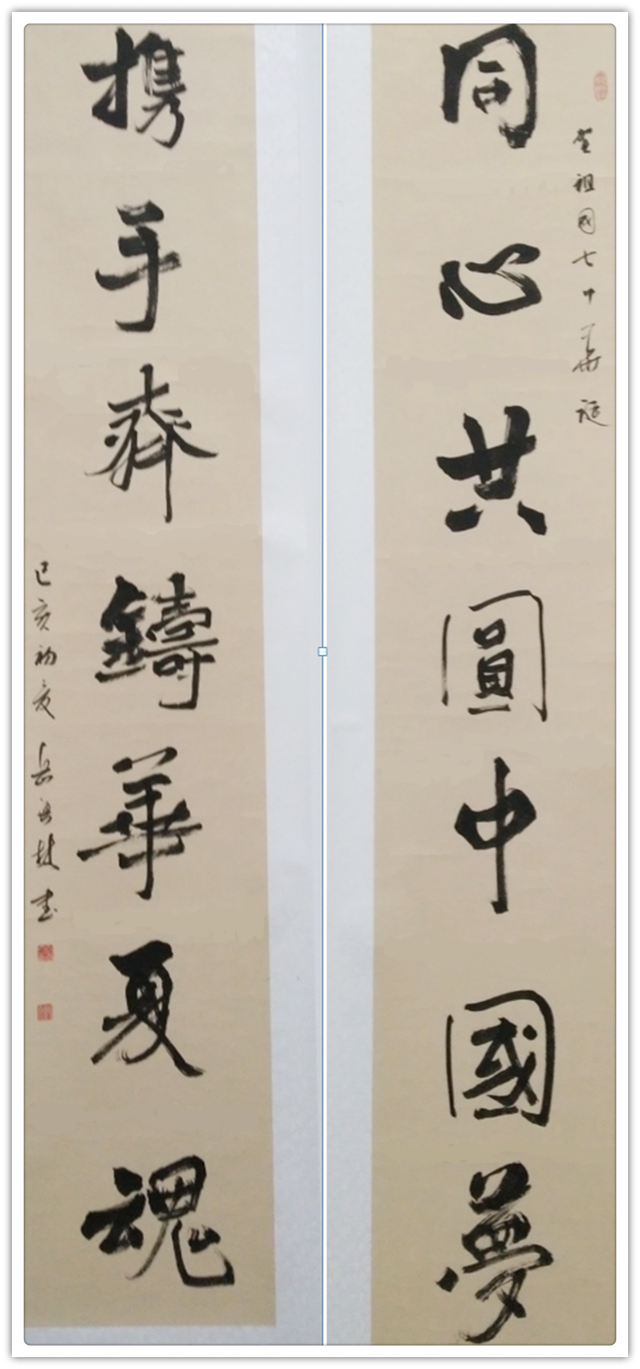 祖國七十華誕
同心共圓中國夢
携手齊鑄華夏魂
己亥初夏 岳 書